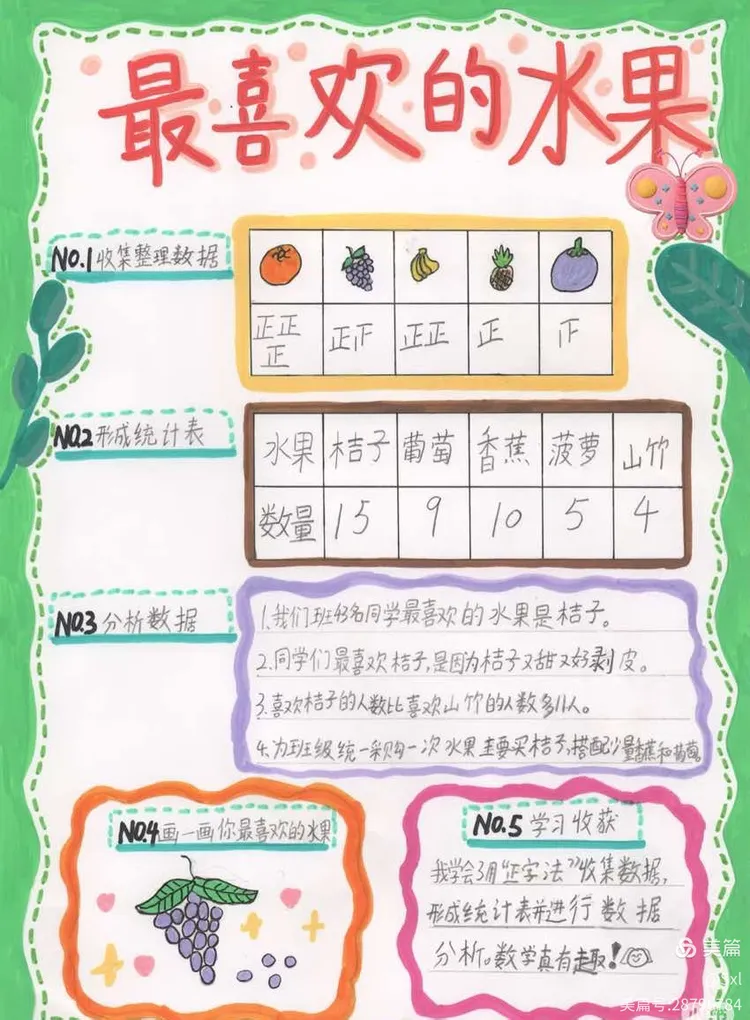 最喜欢的水果
NO.1收集整理数据
正正正 正正 正正 正 正
NO.2形成统计表
水果 桔子 葡萄 香蕉 菠萝 山竹
数量 15 9 10 5 4
NO.3分析数据
1.我们班43名同学最喜欢的水果是桔子。
2.同学们最喜欢桔子,是因为桔子又甜又好剥皮。
3.喜欢桔子的人数比喜欢山竹的人数多11人。
4.为班级统一采购一次水果主要买桔子,搭配少量香蕉和葡萄。
NO.4画一画你最喜欢的水果
NO.5学习收获
我学会了用“正字法”收集数据,
形成统计表并进行数据
分析。数学真有趣!
美篇
美篇号:28791784